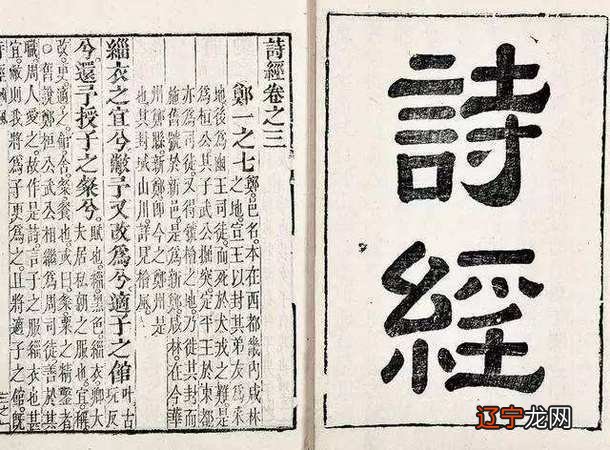 詩
經
辽宁龙网
詩經卷之三
鄭一之七 鄭邑名本在西都畿內咸林
之地宣王以封其弟友為采
地後為幽王司徒而死於犬戎之難是
為桓公其子武公掘突定平王於東都
亦為司徒又得虢檜之地乃徙其封而
施舊號於新邑是為新鄭咸林在今華
州鄭縣新鄭即今之鄭州是
也其封域山川詳見檜風
緇衣之宜兮敝予又改為兮適子之館 叶古
玩反
兮還予授子之粲兮 賦也緇黑色緇衣卿大
夫居私朝之服也宜稱
改更適之館舍粲餐也或曰粲粟之精鑿者
○舊說鄭桓公武公相繼為周司徒善於其
職周人愛之故作是詩言子之服緇衣也甚
宜敝則我將為子更為之且將適子之館既